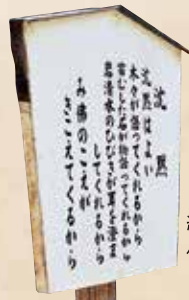 沈黙
沈黙はよい
木々が語ってくれるから
苔むした石が物語ってくれるから
岩清水のひびきが耳を澄ま
してくれるから
み佛のこえが
きこえてくるから